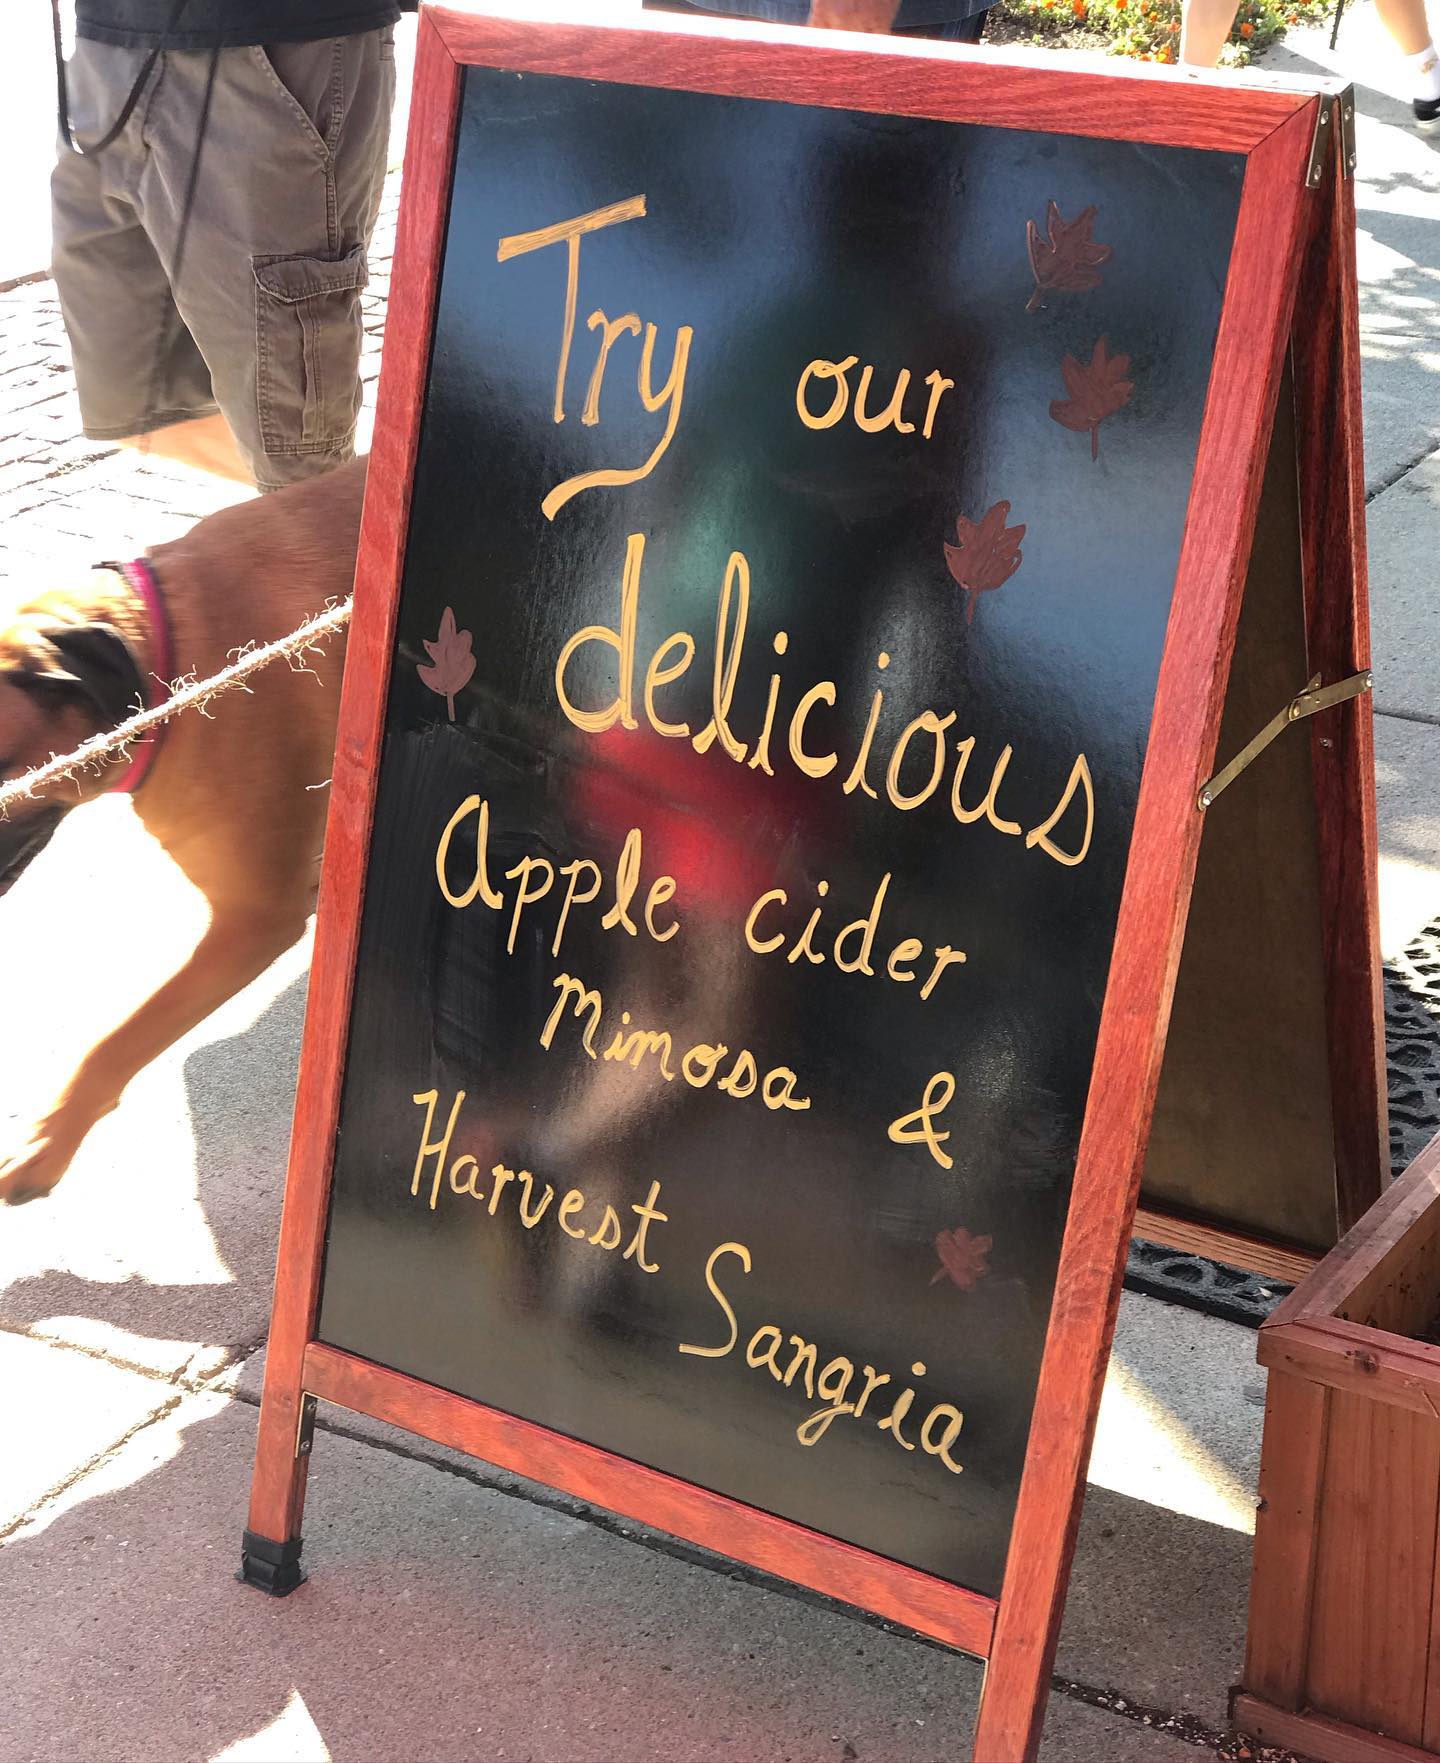 Try our
delicious
Apple cider
Mimosa &
Harvest Sangria